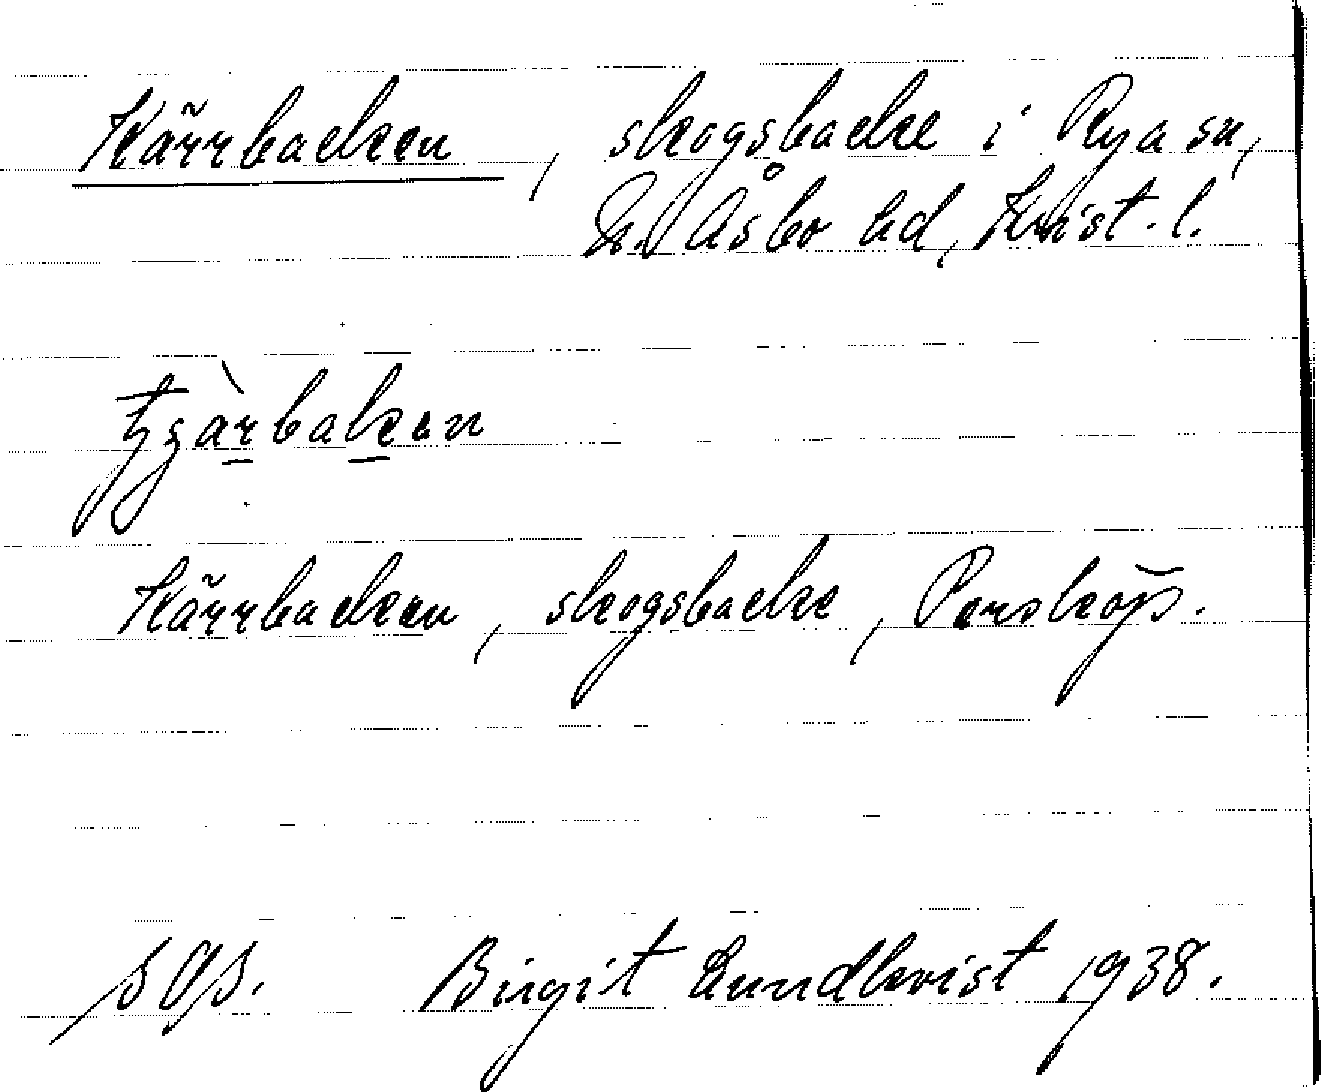 Kärrbacken, skogsbacke i Rya sn,
N. Åsbo hd, Krist. l.
Kärrbacken, skogsbacke, Persköp.
Birgit Lundkvist 1938.